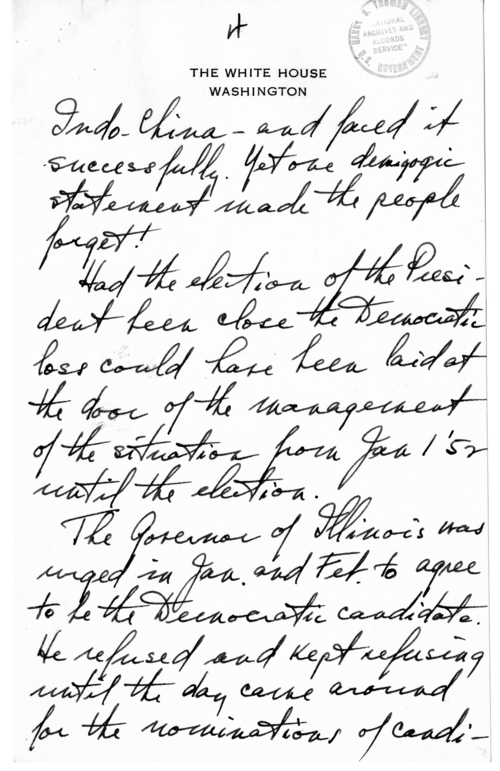 4
HARRY S. TRUMAN LIBRARY
NATIONAL
ARCHIVES AND
RECORDS
SERVICE
U.S. GOVERNMENT
THE WHITE HOUSE
WASHINGTON
Indo-China - and faced it
successfully. Yet one demigogic
statement made the people
forget!
Had the election of the Presi-
dent been close the Democratic
loss could have been laid at
the door of the management
of the situation from Jan 1 '52
until the election.
The Governor of Illinois was
urged in Jan. and Feb. to agree
to be the Democratic candidate.
He refused and kept refusing
until the day came around
for the nominations of candi-